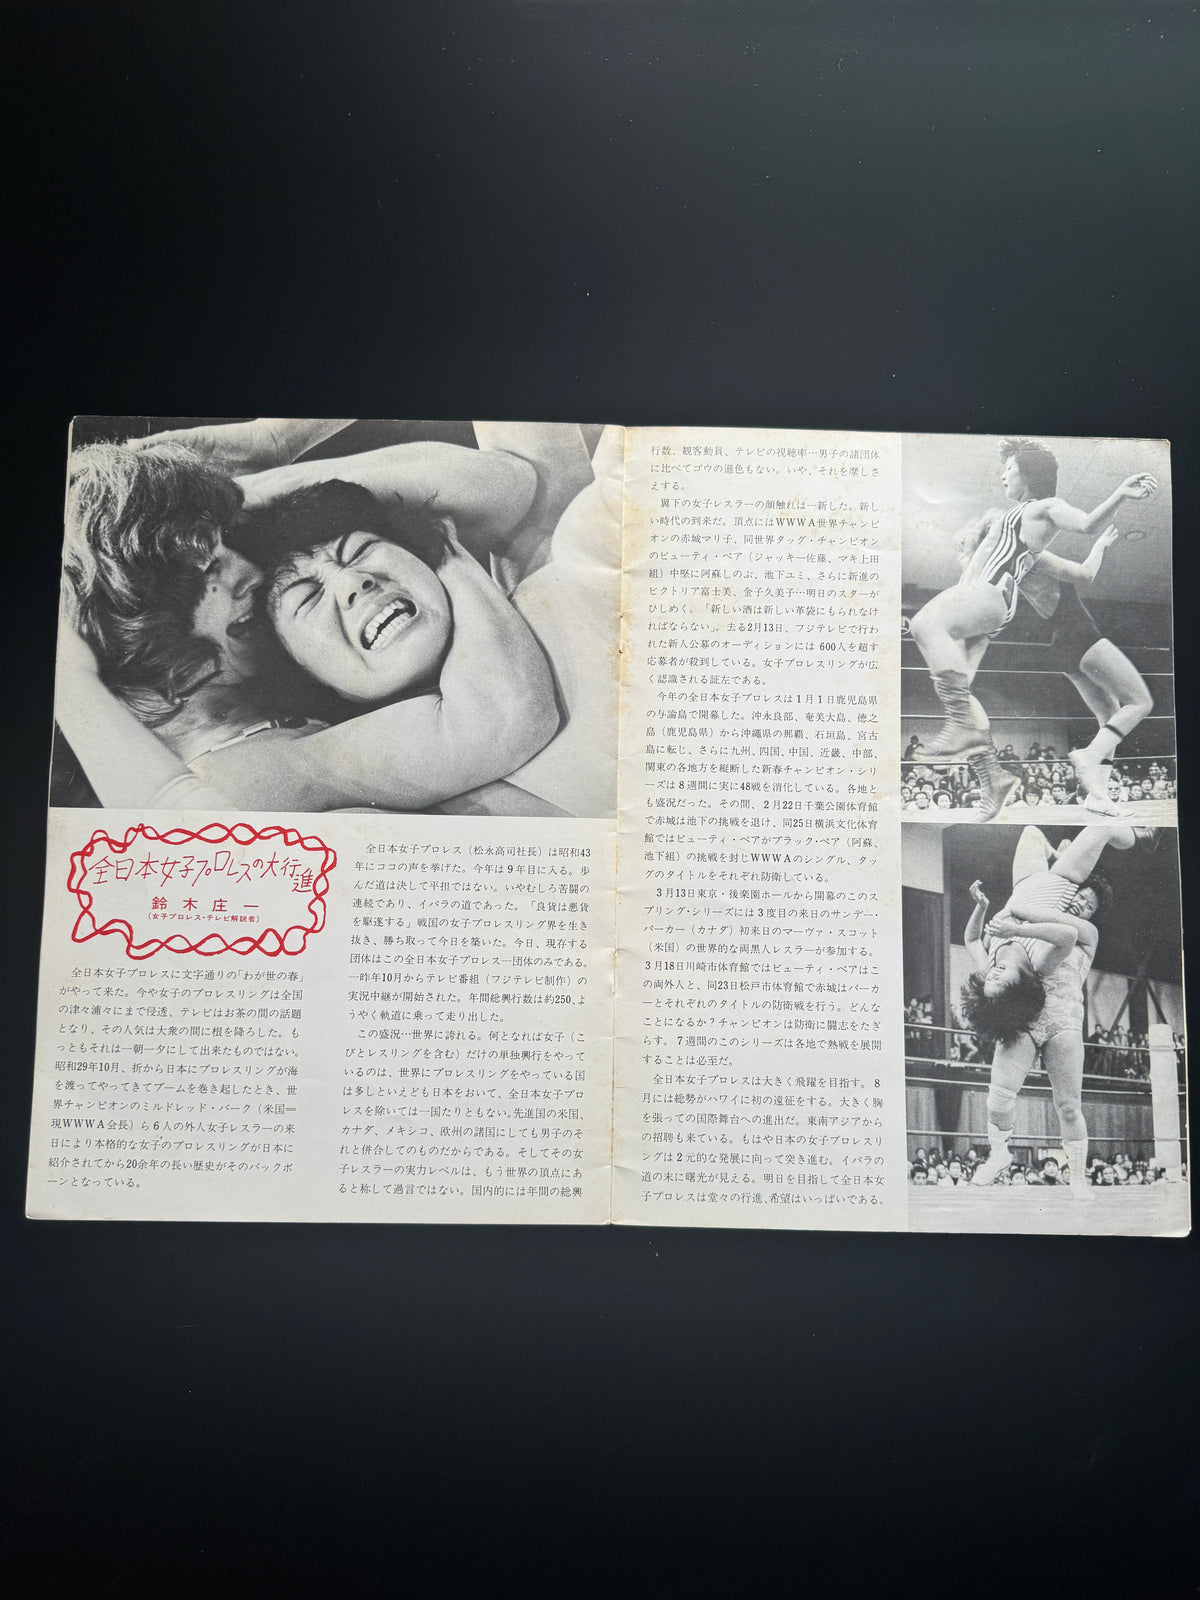 全日本女子プロレスの大行進
鈴木庄一
(女子プロレス・テレビ解説者)
全日本女子プロレスに文字通りの「わが世の春」
がやって来た。今や女子のプロレスリングは全国
の津々浦々にまで侵透、テレビはお茶の間の話題
となり、その人気は大衆の間に根を降ろした。も
っともそれは一朝一夕にして出来たものではない。
昭和29年10月、折から日本にプロレスリングが海
を渡ってやってきてブームを巻き起したとき、世
界チャンピオンのミルドレッド・バーク(米国＝
現WWWA会長)ら6人の外人女子レスラーの来
日により本格的な女子のプロレスリングが日本に
紹介されてから20余年の長い歴史がそのバックボ
ーンとなっている。
全日本女子プロレス(松永高司社長)は昭和43
年にココの声を挙げた。今年は9年目に入る。歩
んだ道は決して平担ではない。いやむしろ苦闘の
連続であり、イバラの道であった。「良貨は悪貨
を駆逐する」戦国の女子プロレスリング界を生き
抜き、勝ち取って今日を築いた。今日、現存する
団体はこの全日本女子プロレス一団体のみである。
一昨年10月からテレビ番組(フジテレビ制作)の
実況中継が開始された。年間総興行数は約250、よ
うやく軌道に乗って走り出した。
この盛況…世界に誇れる。何となれば女子(こ
びとレスリングを含む)だけの単独興行をやって
いるのは、世界にプロレスリングをやっている国
は多しといえども日本をおいて、全日本女子プロ
レスを除いては一国たりともない。先進国の米国、
カナダ、メキシコ、欧州の諸国にしても男子のそ
れと併合してのものだからである。そしてその女
子レスラーの実力レベルは、もう世界の頂点にあ
ると称して過言ではない。国内的には年間の総興
行数、観客動員、テレビの視聴率…男子の諸団体
に比べてゴウの遜色もない。いや、それを摩しさ
えする。
翼下の女子レスラーの顔触れは一新した。新し
い時代の到来だ。頂点にはWWWA世界チャンピ
オンの赤城マリ子、同世界タッグ・チャンピオン
のビューティ・ペア(ジャッキー佐藤、マキ上田
組)中堅に阿蘇しのぶ、池下ユミ、さらに新進の
ビクトリア富士美、金子久美子…明日のスターが
ひしめく。「新しい酒は新しい革袋にもられなけ
ればならない」。去る2月13日、フジテレビで行わ
れた新人公募のオーディションには600人を超す
応募者が殺到している。女子プロレスリングが広
く認識される証左である。
今年の全日本女子プロレスは1月1日鹿児島県
の与論島で開幕した。沖永良部、奄美大島、徳之
島(鹿児島県)から沖縄県の那覇、石垣島、宮古
島に転じ、さらに九州、四国、中国、近畿、中部、
関東の各地方を縦断した新春チャンピオン・シリ
ーズは8週間に実に48戦を消化している。各地と
も盛況だった。その間、2月22日千葉公園体育館
で赤城は池下の挑戦を退け、同25日横浜文化体育
館ではビューティ・ペアがブラック・ペア(阿蘇、
池下組)の挑戦を封じWWWAのシングル、タッ
グのタイトルをそれぞれ防衛している。
3月13日東京・後楽園ホールから開幕のこのス
プリング・シリーズには3度目の来日のサンデー・
パーカー(カナダ)初来日のマーヴァ・スコット
(米国)の世界的な両黒人レスラーが参加する。
3月18日川崎市体育館ではビューティ・ペアはこ
の両外人と、同23日松戸市体育館で赤城はパーカ
ーとそれぞれのタイトルの防衛戦を行う。どんな
ことになるか?チャンピオンは防衛に闘志をたぎ
らす。7週間のこのシリーズは各地で熱戦を展開
することは必至だ。
全日本女子プロレスは大きく飛躍を目指す。8
月には総勢がハワイに初の遠征をする。大きく胸
を張っての国際舞台への進出だ。東南アジアから
の招聘も来ている。もはや日本の女子プロレスリ
ングは2元的な発展に向って突き進む。イバラの
道の末に曙光が見える。明日を目指して全日本女
子プロレスは堂々の行進、希望はいっぱいである。